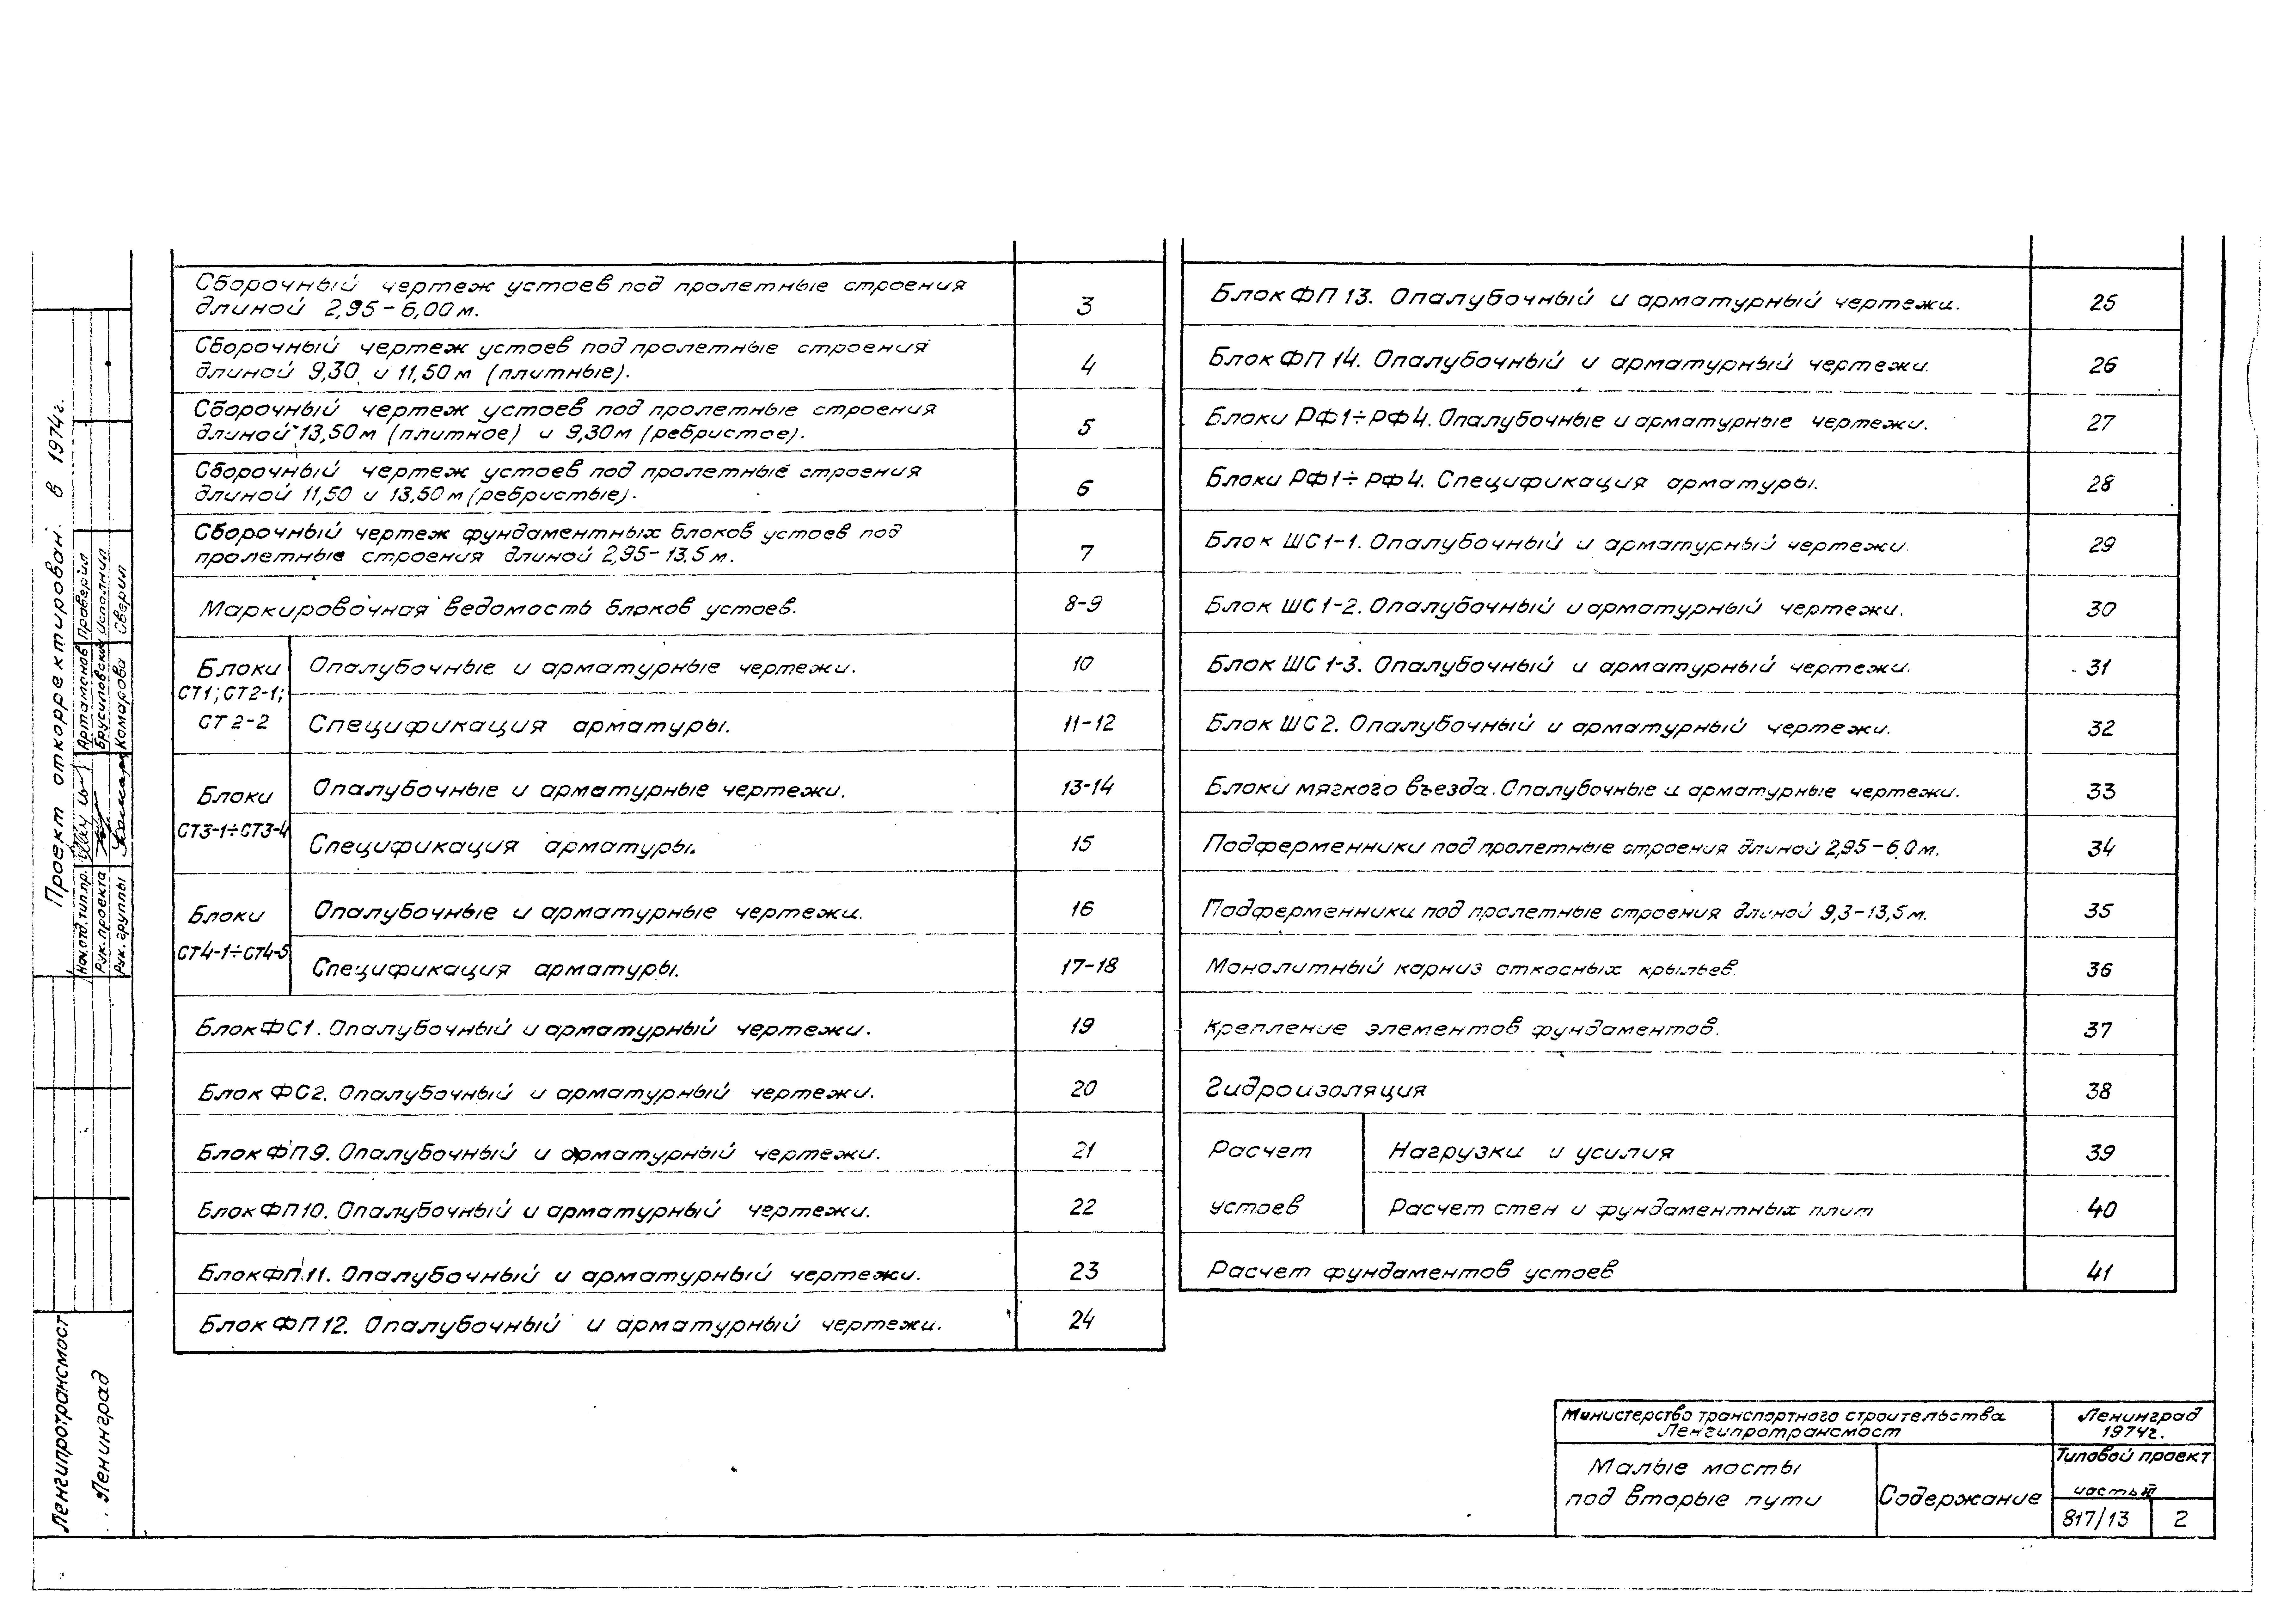 Сборочный чертеж устоев под пролетные строения
длиной 2,95-6,00м. 3
Сборочный чертеж устоев под пролетные строения
длиной 9,30 и 11,50м (плитные). 4
Сборочный чертеж устоев под пролетные строения
длиной 13,50м (плитное) и 9,30м (ребристое). 5
Сборочный чертеж устоев под пролетные строения
длиной 11,50 и 13,50м (ребристые). 6
Сборочный чертеж фундаментных блоков устоев под
пролетные строения длиной 2,95-13,5м. 7
Маркировочная ведомость блоков устоев. 8-9
Блоки
СТ1; СТ2-1;
СТ2-2
Опалубочные и арматурные чертежи. 10
Спецификация арматуры. 11-12
Блоки
СТ3-1÷СТ3-4
Опалубочные и арматурные чертежи. 13-14
Спецификация арматуры. 15
Блоки
СТ4-1÷СТ4-5
Опалубочные и арматурные чертежи. 16
Спецификация арматуры. 17-18
Блок ФС1. Опалубочный и арматурный чертежи. 19
Блок ФС2. Опалубочный и арматурный чертежи. 20
Блок ФП9. Опалубочный и арматурный чертежи. 21
Блок ФП10. Опалубочный и арматурный чертежи. 22
Блок ФП11. Опалубочный и арматурный чертежи. 23
Блок ФП12. Опалубочный и арматурный чертежи. 24
Блок ФП13. Опалубочный и арматурный чертежи. 25
Блок ФП14. Опалубочный и арматурный чертежи. 26
Блоки РФ1÷РФ4. Опалубочные и арматурные чертежи. 27
Блоки РФ1÷РФ4. Спецификация арматуры. 28
Блок ШС1-1. Опалубочный и арматурный чертежи. 29
Блок ШС1-2. Опалубочный и арматурный чертежи. 30
Блок ШС1-3. Опалубочный и арматурный чертежи. 31
Блок ШС2. Опалубочный и арматурный чертежи. 32
Блоки мягкого въезда. Опалубочные и арматурные чертежи. 33
Подферменники под пролетные строения длиной 2,95-6,0м. 34
Подферменники под пролетные строения длиной 9,3-13,5м. 35
Монолитный карниз откосных крыльев. 36
Крепление элементов фундаментов. 37
Гидроизоляция 38
Расчет
устоев
Нагрузки и усилия 39
Расчет стен и фундаментных плит 40
Расчет фундаментов устоев 41
Министерство транспортного строительства
Ленгипротрансмост
Ленинград
1974г.
Малые мосты
под вторые пути
Содержание
Типовой проект
часть III
817/13 2
Проект откорректирован в 1974г.
Нач.отд.тип.пр. Артамонов Проверил
Рук.проекта Брусиловский Исполнил
Рук.группы Комарова Сверил
Ленгипротрансмост
Ленинград